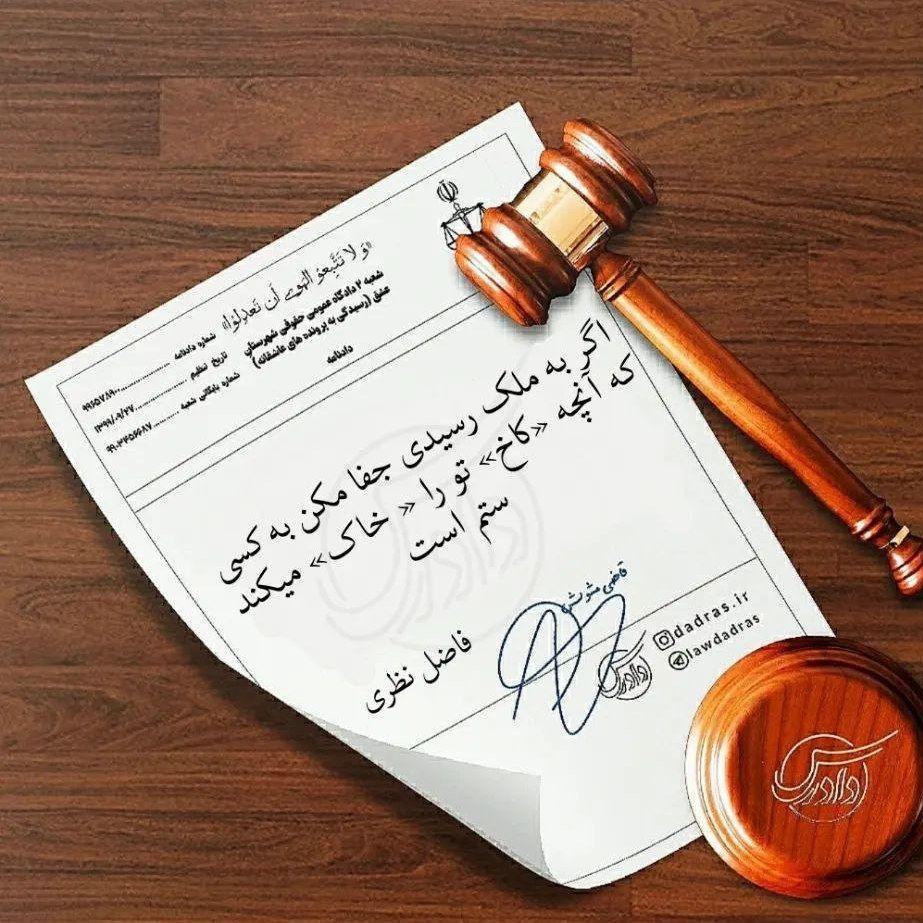 «وَ لا تَتَّبِعُو الهَوی أَن تَعدِلوُا»
شعبه ۲ دادگاه عمومی حقوقی شهرستان
عشق (رسیدگی به پرونده های عاشقانه)
دادنامه
شماره دادنامه ............ ۹۹۶۵۷۸۹۰۰
تاریخ تنظیم ............ ۱۳۹۹/۰۹/۲۷
شماره بایگانی شعبه ........ ۹۹۰۳۴۵۶۶۸۷
اگر به ملک رسیدی جفا مکن به کسی
که آنچه «کاخ» تو را « خاک» میکند
ستم است
فاضل نظری
قاضی شورش
dadras.ir
lawdadras
دادرس
دادرس
دادرس